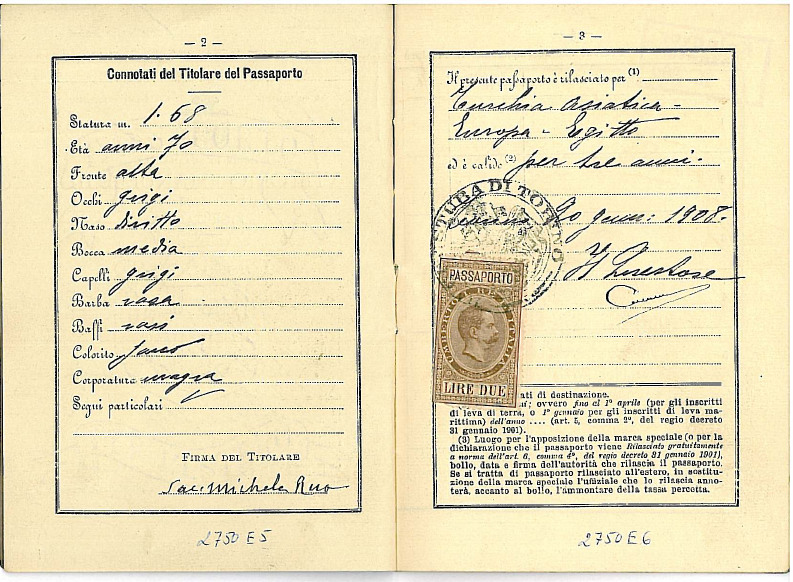 — 2 —
Connotati del Titolare del Passaporto
Statura m. 1.68
Età anni 70
Fronte alta
Occhi grigi
Naso diritto
Bocca media
Capelli grigi
Barba rasa
Baffi rasi
Colorito sano
Corporatura magra
Segni particolari
FIRMA DEL TITOLARE
Sac. Michele Rua
2750 E 5
— 3 —
Il presente passaporto è rilasciato per (1)
Turchia asiatica -
Europa - Egitto
ed è valido (2) per tre anni.
STURA DI TORINO
20 genn: 1908.
Il Questore
PASSAPORTO
UMBERTO I RE D'ITALIA
LIRE DUE
ati di destinazione.
ni; ovvero fino al 1° aprile (per gli inscritti
di leva di terra, o 1° gennaio per gli inscritti di leva ma-
rittima) dell'anno .... (art. 5, comma 2°, del regio decreto
31 gennaio 1901).
(3) Luogo per l'apposizione della marca speciale (o per la
dichiarazione che il passaporto viene Rilasciato gratuitamente
a norma dell'art. 6, comma 4°, del regio decreto 31 gennaio 1901),
bollo, data e firma dell'autorità che rilascia il passaporto.
Se si tratta di passaporto rilasciato all'estero, in sostitu-
zione della marca speciale l'uffiziale che lo rilascia anno-
terà, accanto al bollo, l'ammontare della tassa percetta.
2750 E 6